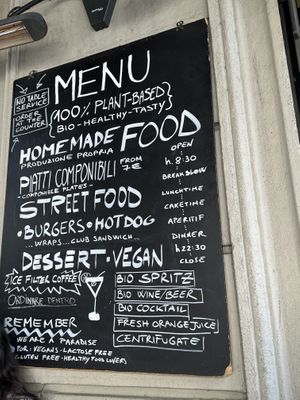 NO TABLE
SERVICE
ORDER
AT THE
COUNTER
MENU
100% PLANT-BASED
BIO - HEALTHY - TASTY
HOMEMADE FOOD
PRODUZIONE PROPRIA
PIATTI COMPONIBILI FROM 7€
- COMPONIBLE PLATES -
STREET FOOD
• BURGERS • HOTDOG
...WRAPS...CLUB SANDWICH...
DESSERT • VEGAN
OPEN
h 8:30
BREAKSLOW
LUNCHTIME
CAKETIME
APERITIF
DINNER
h 22:30
CLOSE
ICE FILTER COFFEE
ORDINARE DENTRO
REMEMBER
WE ARE A PARADISE
FOR: VEGANS • LACTOSE FREE
GLUTEN FREE • HEALTHY FOOD LOVERS
BIO SPRITZ
BIO WINE/BEER
BIO COCKTAIL
FRESH ORANGE JUICE
CENTRIFUGATE